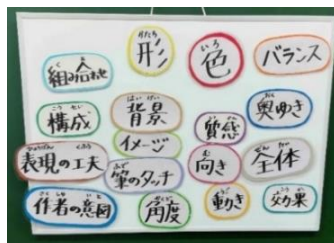 組み合わせ 形 色 バランス
構成 背景 質感 奥ゆき
イメージ
表現の工夫 筆のタッチ 向き 全体
作者の意図 角度 動き 効果